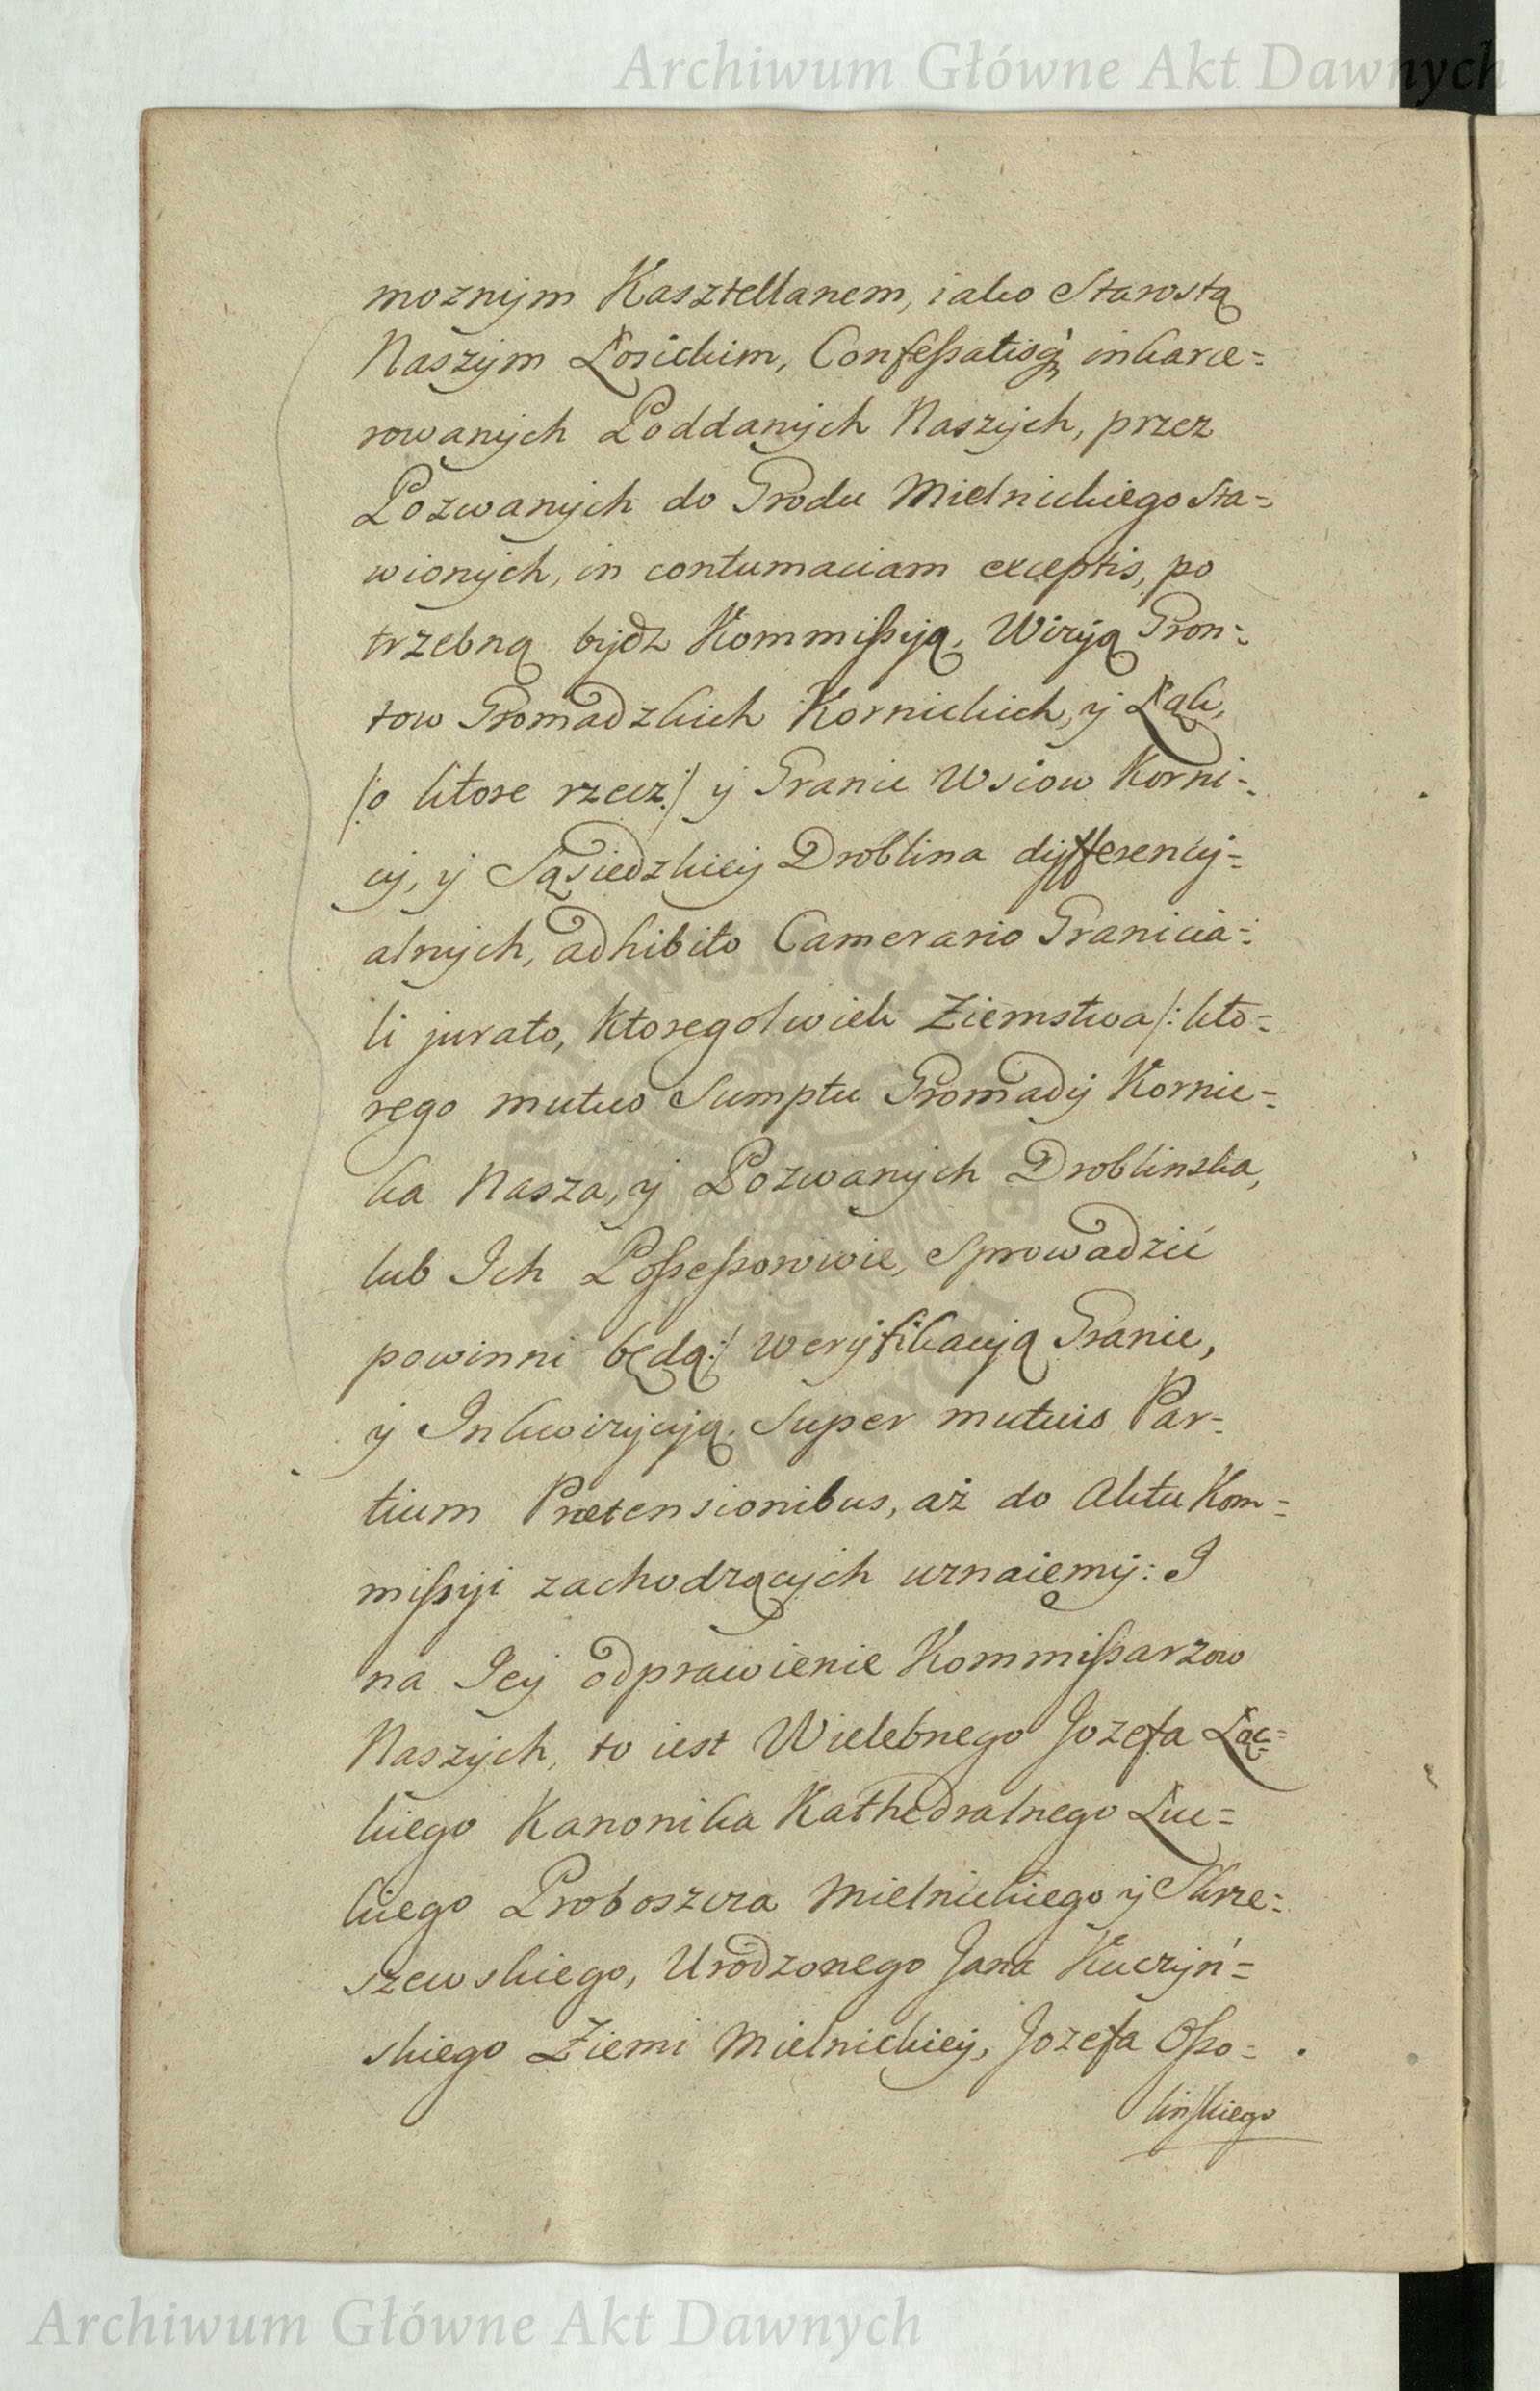 Archiwum Główne Akt Dawnych
moznÿm Kasztellanem, iako Starostą
Naszÿm Łosickim, Confessatisq́ inkarce=
rowanÿch Poddanÿch Naszÿch, przez
Pozwanÿch do Grodu Mielnickiego sta=
wionÿch, in contumaciam exceptis, po
trzebną bÿdz Kommissÿą, Wizÿą Gron=
tow Gromadzkich Kornickich, ÿ Łąk,
/:o ktore rzecz:/ ÿ Granic Wsiow Korni=
cÿ, ÿ Sąsiedzkieÿ Droblina dÿfferencÿ=
alnÿch, adhibito Camerario Granicia=
li jurato, ktoregolwiek Ziemstwa /: kto=
rego mutuo Sumptu Gromadÿ Kornic=
ka Nasza, ÿ Pozwanÿch Droblinska,
lub Ich Possessorowie, sprowadzić
powinni będą:/ werÿfikacÿą Granic,
ÿ Inkwizÿcÿą. Super mutuis Par=
tium Prætensionibus, aż do Aktu Kom=
missÿi zachodzącÿch uznaięmÿ: I
na Ieÿ odprawienie Kommissarzow
Naszÿch, to iest Wielebnego Jozefa Łąc=
kiego Kanonika Kathedralnego Łuc=
kiego Proboszcza Mielnickiego ÿ Skrze=
szewskiego, Urodzonego Jana Kuczÿń=
skiego Ziemi Mielnickieÿ, Jozefa Osso=
linskiego
Archiwum Główne Akt Dawnych